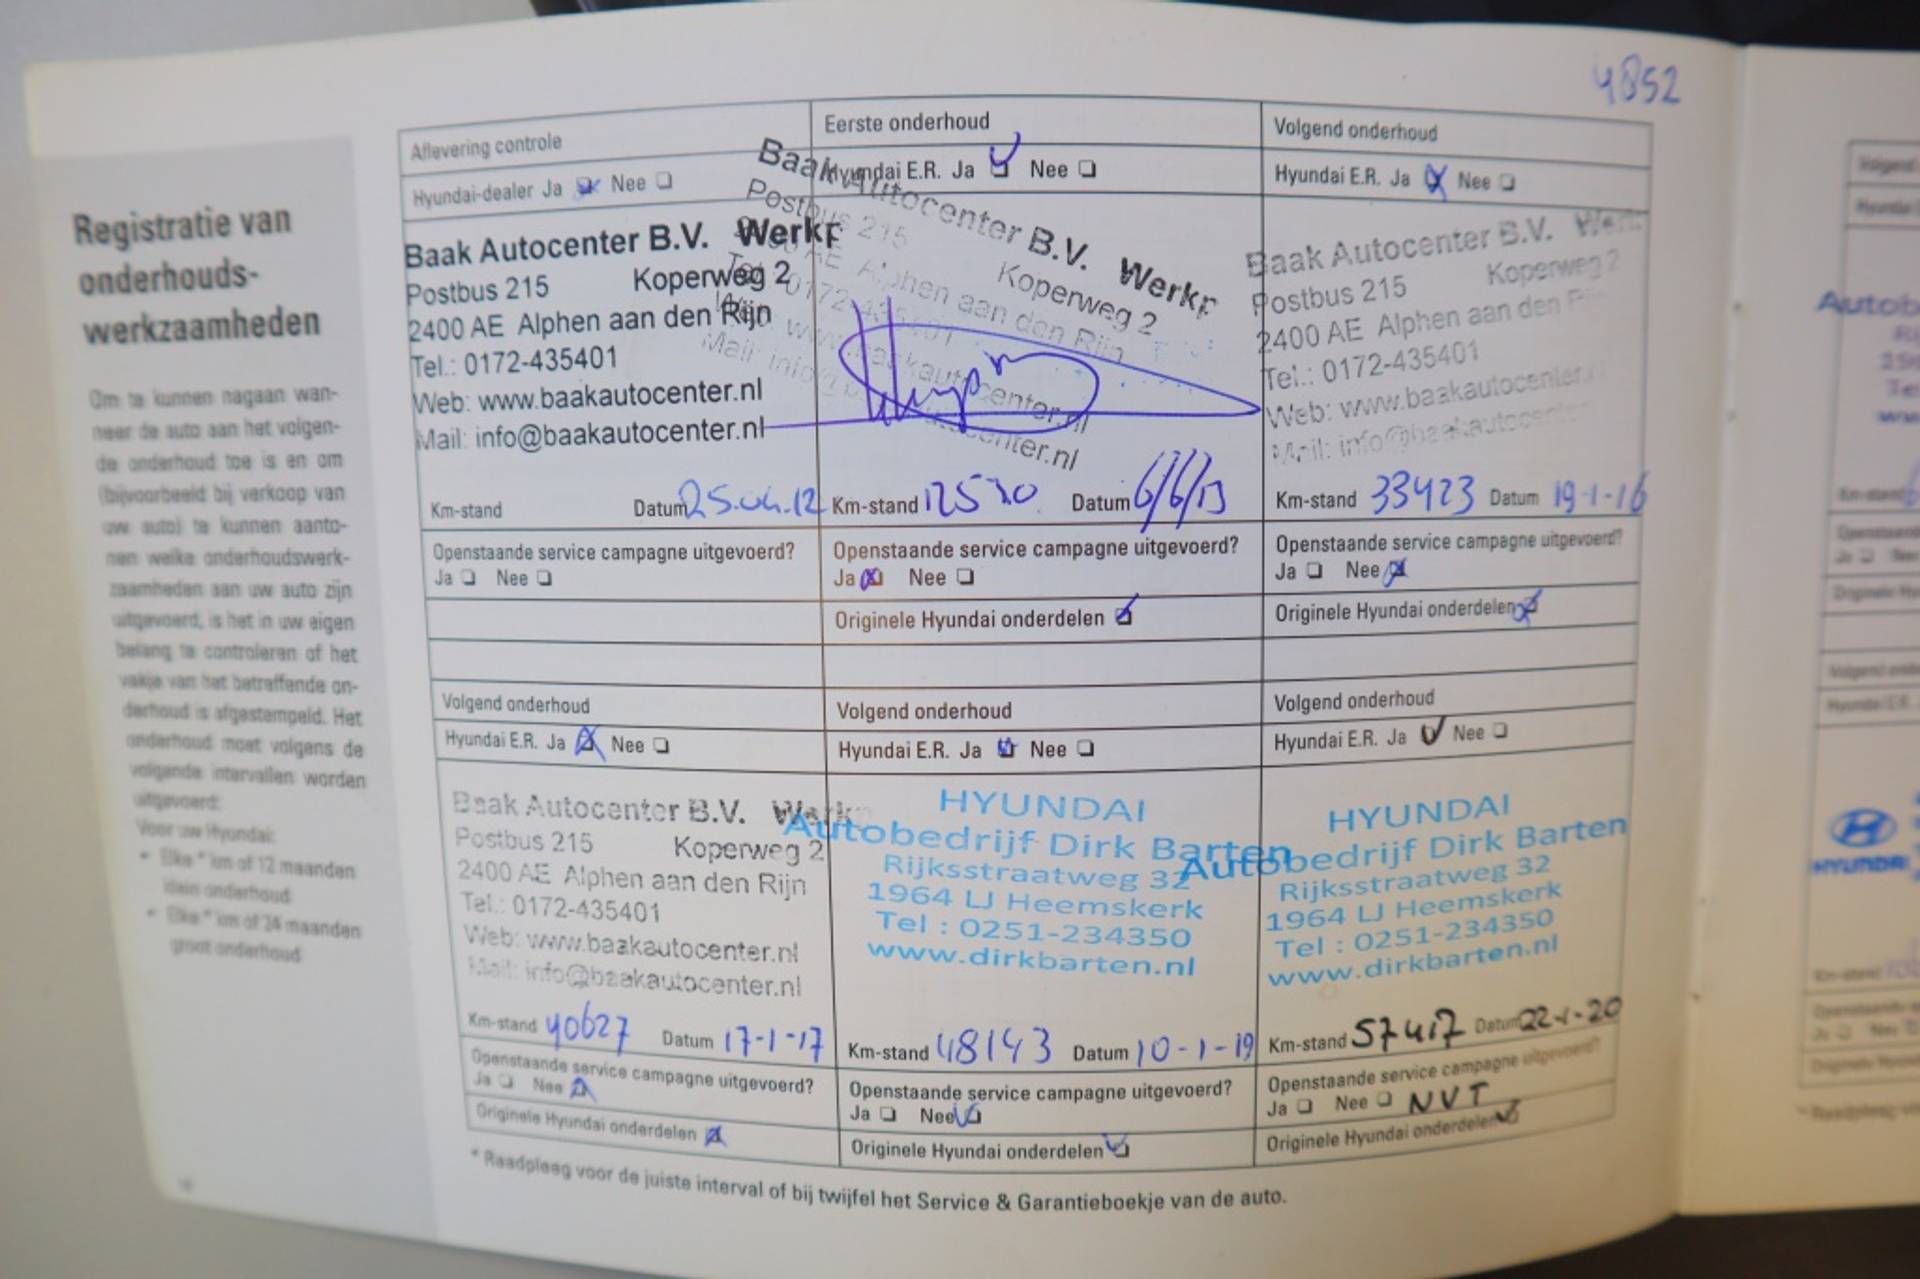 4852
Registratie van
onderhouds-
werkzaamheden
Om te kunnen nagaan wan-
neer de auto aan het volgen-
de onderhoud toe is en om
(bijvoorbeeld bij verkoop van
uw auto) te kunnen aanto-
nen welke onderhoudswerk-
zaamheden aan uw auto zijn
uitgevoerd, is het in uw eigen
belang te controleren of het
vakje van het betreffende on-
derhoud is afgestempeld. Het
onderhoud moet volgens de
volgende intervallen worden
uitgevoerd:
Voor uw Hyundai:
• Elke * km of 12 maanden
klein onderhoud
• Elke * km of 24 maanden
groot onderhoud
Aflevering controle
Hyundai-dealer Ja Nee
Baak Autocenter B.V. Werkp
Postbus 215 Koperweg 2
2400 AE Alphen aan den Rijn
Tel.: 0172-435401
Web: www.baakautocenter.nl
Mail: info@baakautocenter.nl
Km-stand Datum 25.04.12
Openstaande service campagne uitgevoerd?
Ja Nee
Eerste onderhoud
Hyundai E.R. Ja Nee
Baak Autocenter B.V. Werkp
Postbus 215 Koperweg 2
AE Alphen aan den Rijn
Tel.: 0172-435401
www.baakautocenter.nl
Mail: info@baakautocenter.nl
Km-stand Datum 6/6/13
Openstaande service campagne uitgevoerd?
Ja Nee
Originele Hyundai onderdelen
Volgend onderhoud
Hyundai E.R. Ja Nee
Baak Autocenter B.V. Werk
Postbus 215 Koperweg 2
2400 AE Alphen aan den
Tel.: 0172-435401
Web: www.baakautocenter.
Mail: info@baakautocenter
Km-stand 33423 Datum 19-1-16
Openstaande service campagne uitgevoerd?
Ja Nee
Originele Hyundai onderdelen
Volgend onderhoud
Hyundai E.R. Ja Nee
Baak Autocenter B.V. Werkp
Postbus 215 Koperweg 2
2400 AE Alphen aan den Rijn
Tel.: 0172-435401
Web: www.baakautocenter.nl
Mail: info@baakautocenter.nl
Km-stand 40627 Datum 17-1-17
Openstaande service campagne uitgevoerd?
Ja Nee
Originele Hyundai onderdelen
Volgend onderhoud
Hyundai E.R. Ja Nee
HYUNDAI
Autobedrijf Dirk Barten
Rijksstraatweg 32
1964 LJ Heemskerk
Tel : 0251-234350
www.dirkbarten.nl
Km-stand 48143 Datum 10-1-19
Openstaande service campagne uitgevoerd?
Ja Nee
Originele Hyundai onderdelen
Volgend onderhoud
Hyundai E.R. Ja Nee
HYUNDAI
Autobedrijf Dirk Barten
Rijksstraatweg 32
1964 LJ Heemskerk
Tel : 0251-234350
www.dirkbarten.nl
Km-stand 57417 Datum 22-1-20
Openstaande service campagne uitgevoerd?
Ja Nee NVT
Originele Hyundai onderdelen
* Raadpleeg voor de juiste interval of bij twijfel het Service & Garantieboekje van de auto.
HYUNDAI